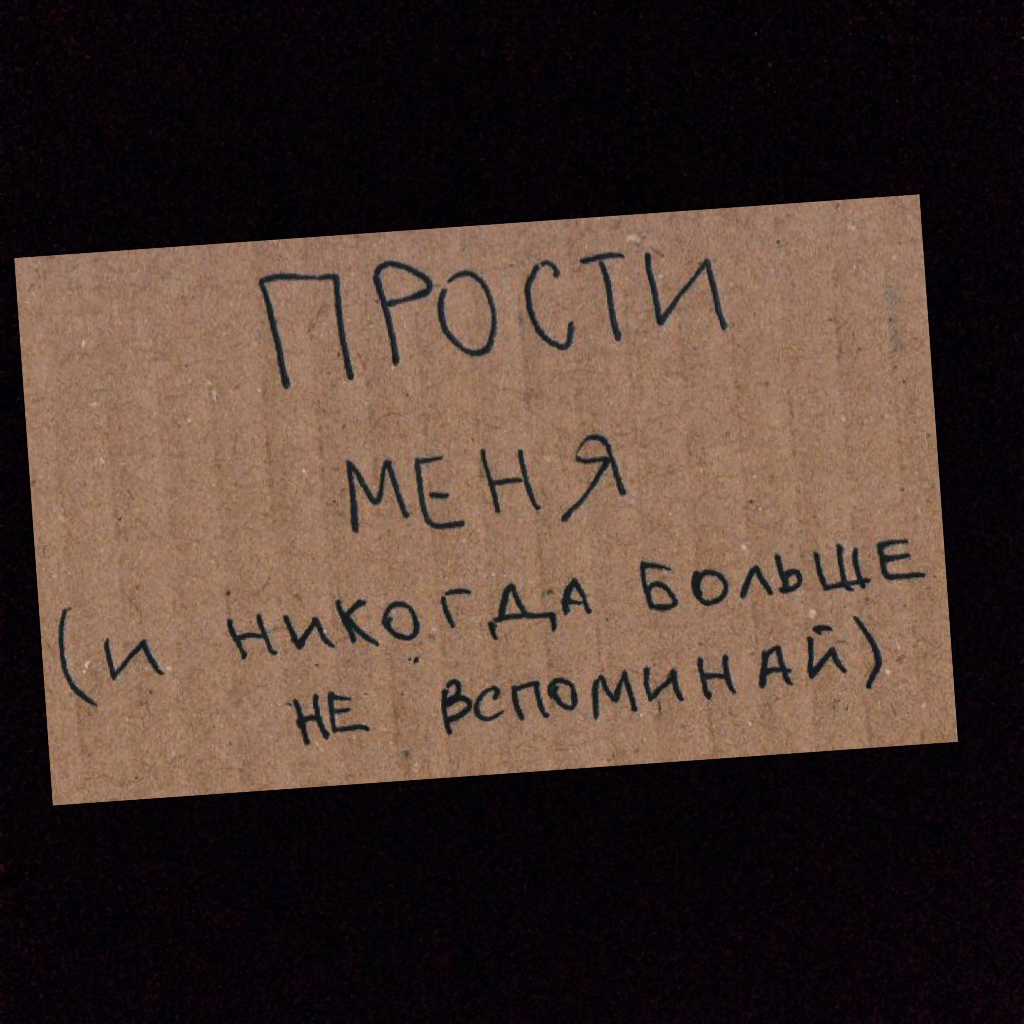 ПРОСТИ
МЕНЯ
(И НИКОГДА БОЛЬШЕ
НЕ ВСПОМИНАЙ)